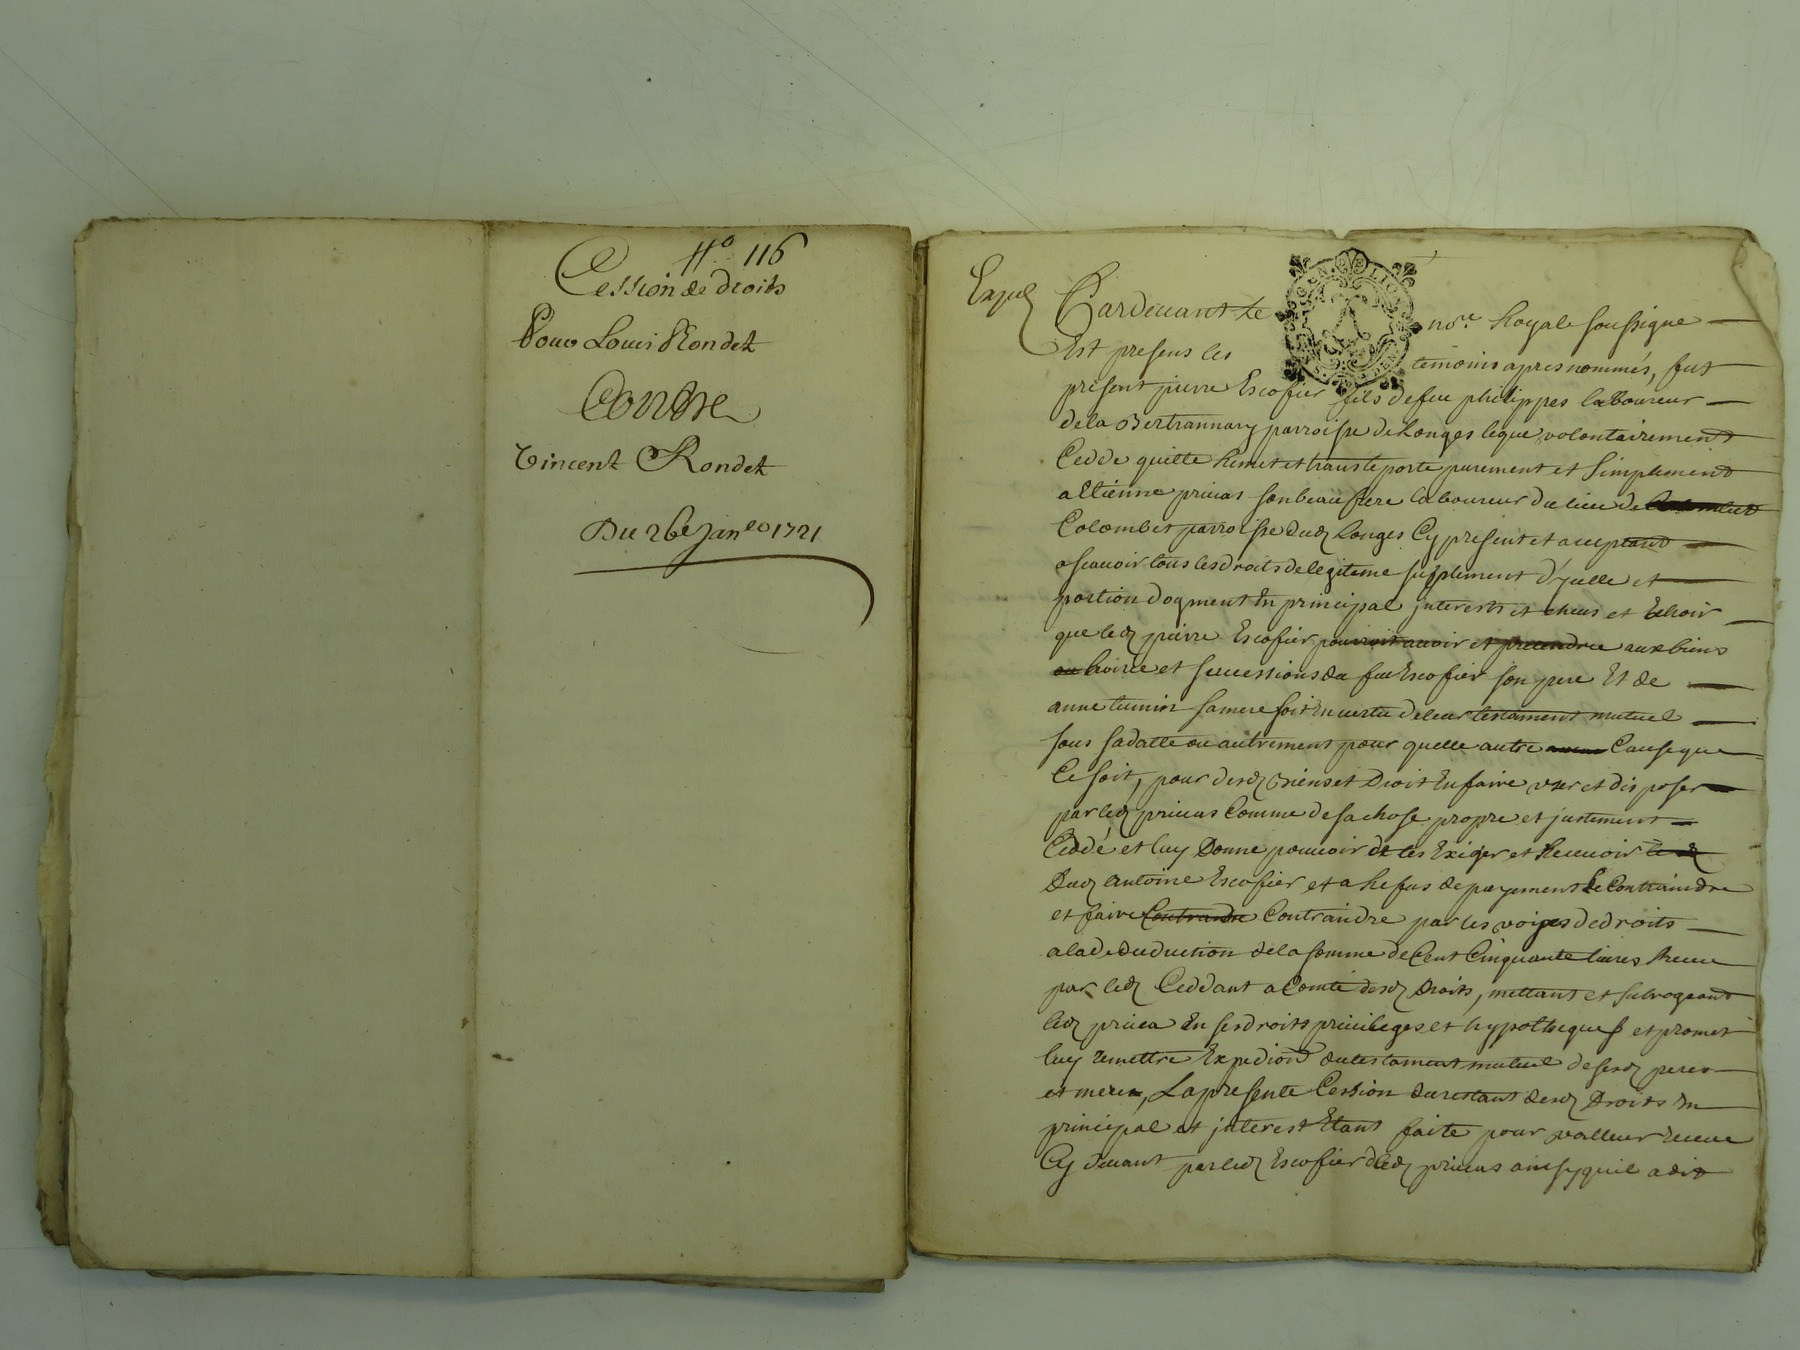 N.º 116
Cession de droits
Pour Louis Rondet
Contre
Vincent Rondet
Du 26e janv. 1721
Expéd
Pardevant Le no.re Royale soussigne
Est presens les temoins apres nommés, fut
present pierre Escofier fils de feu philippes laboureur
de la Bertrannary parroisse de Longes lequel volontairement
Cedde quitte Remet et transteporte purement et simplement
a Etienne privas son beau frere laboureur du lieu de
Colombet parroisse dud Longes Cy present et aceptant
ascavoir tous les droits de legitime supplement d'ycelle et
portion dogment En principal interests et cheus et Echoir
que led pierre Escofier pourroit avoir et pretendre aux biens
hoirie et successions du feu Escofier son pere Et de
anne sa mere soit En vertu de leur testament mutuel
sous sa datte ou autrement pour quelle autre Cause que
Ce soit, pour desd Biens et Droit En faire user et disposer
par led privas Comme de sa chose propre et justement
Ceddé et luy Donne pouvoir de les Exiger et Recevoir
Dud antoine Escofier et a Refus de payement le Contraindre
et faire Contraindre Contraindre par les voyes de droits
a la deduduction de la somme de Cent Cinquante livres Receue
par led Ceddant a Comte desd Droits, mettant et subrogeant
led priva En ses droits privileges et hypotheques et promet
luy remettre Expedion du testament mutuel de sesd peres
et meres, La presente Cession du restant desd Droits En
principal et interest Etant faite pour valleur receue
Cy devant par led Escofier dud privas ainsy quil a dit